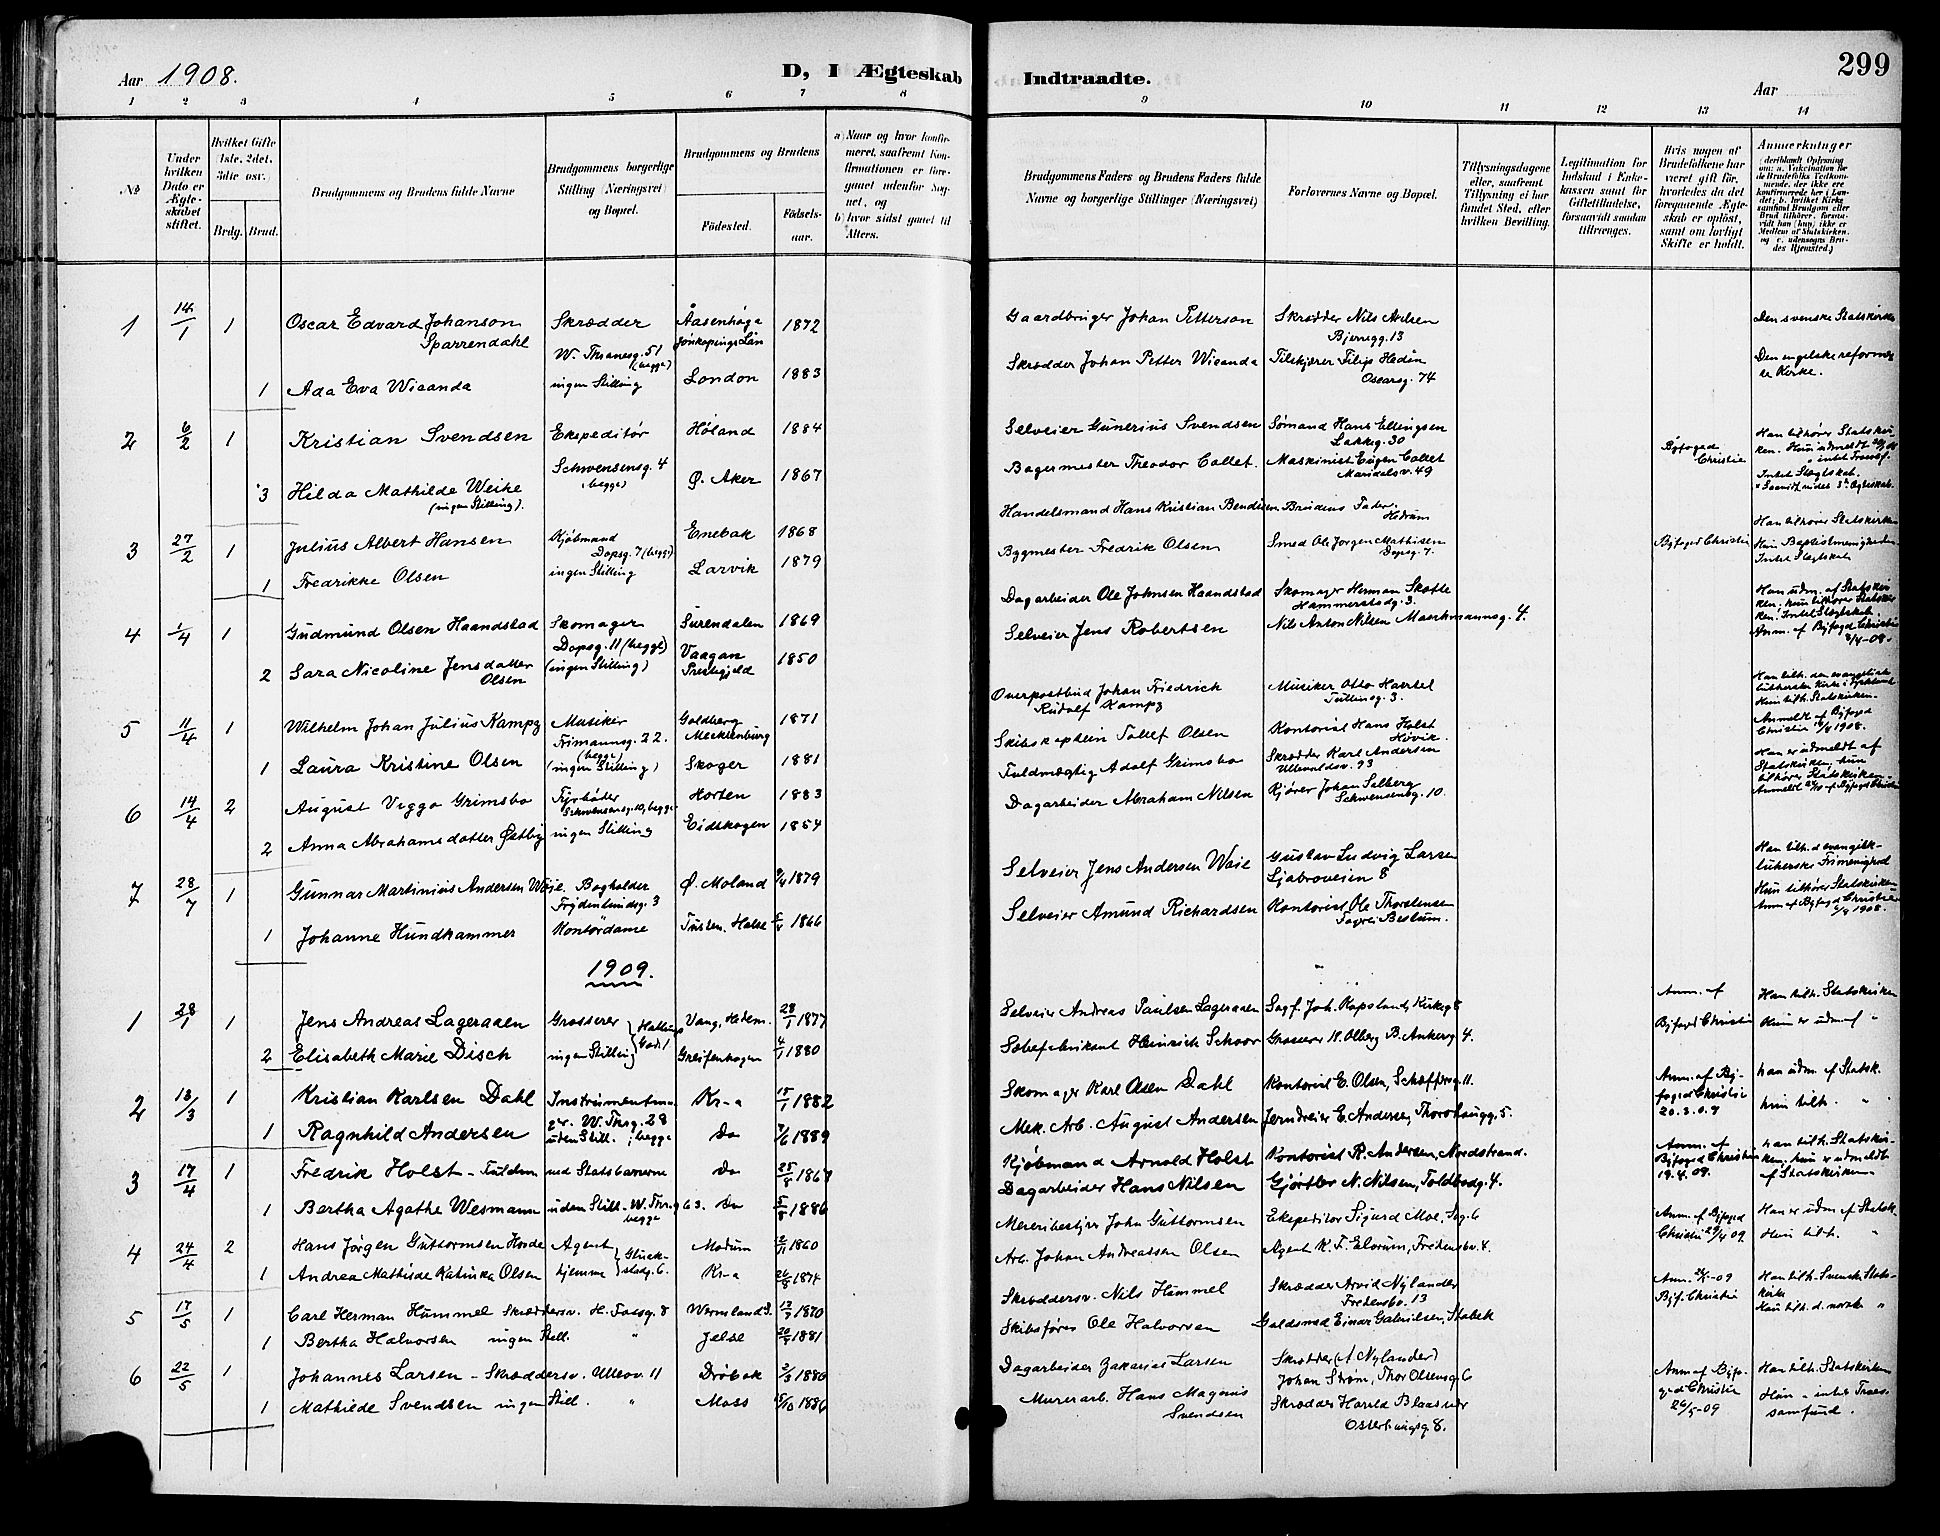 Aar 1908.
D, I Ægteskab Indtraadte.
299
Aar
1 2 3 4 5 6 7 8 9 10 11 12 13 14
No
Under hvilken Dato er Ægteskabet stiftet.
Hvilket Gifte (1ste, 2det, 3die osv.)
Brdg. Brud.
Brudgommens og Brudens fulde Navne
Brudgommens borgerlige Stilling (Næringsvei) og Bopæl.
Brudgommens og Brudens
Fødested.
Fødsels-aar.
a) Naar og hvor konfirmeret, saafremt Konfirmationen er foregaaet udenfor Sognet, og
b) hvor sidst gaaet til Alters.
Brudgommens Faders og Brudens Faders fulde Navne og borgerlige Stillinger (Næringsvei)
Forlovernes Navne og Bopæl.
Tillysningsdagene eller, saafremt Tillysning ei har fundet Sted, efter hvilken Bevilling.
Legitimation for Indskud i Enkekassen samt for Giftetilladelse, forsaavidt saadan tiltrænges.
Hvis nogen af Brudefolkene har været gift før, hvorledes da det foregaaende Ægteskab er opløst, samt om lovligt Skifte er holdt.
Anmerkninger
1 14/1 1 Oscar Edvard Johanson Sparrendahl Skrædder Åasenhöga Jönkepings Län 1872 Gaardbruger Johan Petterson Skrædder Nils Nilsen Bjerregg. 13 Den svenske Statskirke
W. Thranesg. 51 (begge)
1 Ada Eva Wicanda ingen Stilling London 1883 Skrædder Johan Petter Wicanda Tilskjærer Filip Hedin Oscarsg. 74 Den engelske reformerte Kirke.
2 6/2 1 Kristian Svendsen Ekspeditør Høland 1884 Selveier Gunerius Svendsen Sømand Hans Ellingsen Lakkeg. 30 Byfoged Christie Han tilhører Statskirken.
Schwensensg. 4 (begge)
3 Hilda Mathilde Weihe (ingen Stilling). Ø. Aker 1867 Bagermester Theodor Collet. Maskinist Eugen Collet Maridalsv. 49 Intet Slegtskab.
3 27/2 1 Julius Albert Hansen Kjøbmand Dopsg. 7 (begge) Enebak 1868 Handelsmand Hans Kristian Bendixen Brudens Fader, Hedrum Byfoged Christie Han tilhører Statskirken
1 Fredrikke Olsen ingen Stilling Larvik 1879 Bygmester Fredrik Olsen Smed Ole Jørgen Mathisen Dopsg. 7. Hun Baptistmenigheden. Intet Slegtskab
4 1/4 1 Gudmund Olsen Haandstad Skomager Surendalen 1869 Dagarbeider Ole Johnsen Haandstad Skomager Herman Skotte Hammerstadg. 3. Han udm. af Statskirken, hun tilhører Statskirken. Intet Slegtskab.
Dopsg. 11 (begge)
2 Sara Nicoline Jensdatter Olsen (ingen Stilling) Vaagan Prestegjeld 1850 Selveier Jens Robertsen Nils Anton Nilsen Maschmannsg. 4. Anm. af Byfogd Christie 2/4-08.
5 11/4 1 Wilhelm Johan Julius Kampz Musiker Goldberg Mecklenburg 1871 Overpostbud Johan Friedrich Rudolf Kampz Musiker Otto Hartel Tullinsg. 3. Han tilh. den evangelisk lutherske Kirke i Tyskland Hun tilh. Statskirken.
Frimannsg. 22. (begge)
1 Laura Kristine Olsen (ingen Stilling) Skoger 1881 Skibskaptein Tollef Olsen Kontorist Hans Holst Høvik. Anmeldt af Byfoged Christie 1908.
6 14/4 2 August Viggo Grimsbo Fyrbøter Schwensensg. 10, begge Horten 1883 Fuldmægtig Adolf Grimsbo Skrædder Karl Andersen Ullevoldsv. 93 Han er udmeldt af Statskirken, hun tilhører Statskirken.
2 Anna Abrahamsdatter Østby ingen Stilling Eidskogen 1854 Dagarbeider Abraham Nilsen Kjører Johan Solberg Schwensensg. 10.
7 28/7 1 Gunnar Martinius Andersen Waje. Bogholder Frydenlundsg. 3 Ø. Moland 9/4 1879 Selveier Jens Andersen Waie Gustav Ludvig Larsen Ljabroveien 8 Han tilh. d evangelisk-lutherske Frimenighed
1 Johanne Hundhammer Kontordame Tusten, Halse 1866 Selveier Amund Richardsen Kontorist Ole Thorstensen Fagerli Bestum. Hun tilhører Statskirken Anm. af Byfoged Christie 1908.
1909.
1 28/1 1 Jens Andreas Lageraaen Grosserer Vang, Hedem. 28/1 1877 Selveier Andreas Paulsen Lageraaen Sagf. Joh. Kapsland, Kirkeg 8 Anm. af Han tilh. Statskirken
2 Elisabeth Marie Disch ingen Stilling Greifenhagen 4/1 1880 Sæbefabrikant Heinrich Schoor Grosserer N. Olberg B. Ankersg 4. Byfogd Christie Hun er udm af "
2 13/3 1 Kristian Karlsen Dahl Instrumentmager. W. Thrsg. 28 Kr-a 15/1 1882 Skomager Karl Olsen Dahl Kontorist E. Olsen, Schæffersg. 11. Anm. af Byfoged Christie 20.3.09 han udm. af Statsk.
1 Ragnhild Andersen uden Still. begge Do 7/6 1889 Mek. Arb. August Andersen Jerndreier E. Andersen, Thorshaugg. 5. hun tilh. "
3 17/4 1 Fredrik Holst - Fuldm. ved Statsbanerne Do 25/8 1867 Kjøbmand Arnold Holst Kontorist R. Andersen, Nordstrand. Anm. af Byfoged Christie 19.4.09. han tilh. Statskirken. hun er udmeldt af Statskirken
1 Bertha Agathe Wesmann uden Still. W. Thr.g 63. begge Do 5/8 1886 Dagarbeider Hans Nilsen Gjørtler N. Nilsen, Toldbodg. 4.
4 24/4 2 Hans Jørgen Guttormsen Horde Agent Modum 2/11 1860 Meieribestyrer John Guttormsen Ekspeditør Sigurd Moe, Seg. 6 Anm. af Byfoged Christie 29/4 09 Han er udm af Statsk.
1 Andrea Mathilde Katinka Olsen hjemme Glückstadg. 6. Kr-a 26/8 1874 Arb. Johan Andreassen Olsen Agent K. F. Elorum, Fredensbv. 4. Hun tilh. "
5 17/5 1 Carl Herman Hummel Skræddersv. H. Faesg. 8 Wermland S. 13/9 1870 Skræddersv. Nils Hummel Skrædder Arvid Nylander Fredensbv. 13 Byf. Christie Han tilh. Svensk Statskirke
1 Bertha Halvorsen ingen Still. " Jelse 20/9 1881 Skibsfører Ole Halvorsen Guldsmed Einar Gabrielsen, Stabek Hun tilh. d. norske "
6 22/5 1 Johannes Larsen - Skræddersv. Ullevv. 11 Drøbak 2/3 1880 Dagarbeider Zakarias Larsen Skrædder (A. Nylander) Johan Strøm, Thor Olsensg. 6 Anm af Byfoged Christie 26/5-09 Han tilh. Statskirken
1 Mathilde Svendsen ingen Still. " Moss 15/10 1886 Murerarb. Hans Magnus Svendsen Skrædder Harald Blaasvær Osterhausg. 8. Hun " intet Troessamfund.